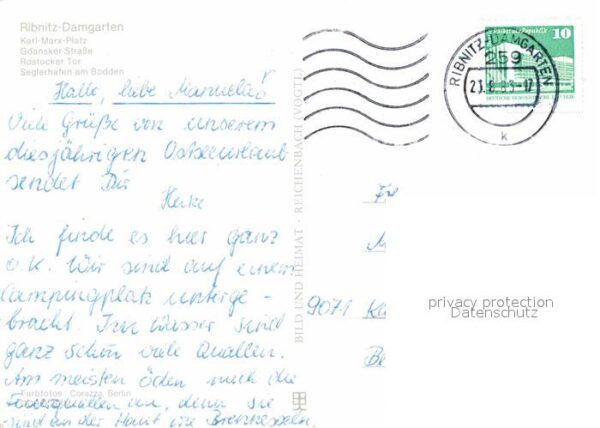 Ribnitz-Damgarten
Karl-Marx-Platz
Gdansker Straße
Rostocker Tor
Seglerhafen am Bodden
Hallo, liebe Manuela!
Viele Grüße von unserem
diesjährigen Ostseeurlaub
sendet Dir
Heike
Ich finde es hier ganz
o.k. Wir sind auf einem
Campingplatz unterge-
bracht. Im Wasser sind
ganz schön viele Quallen.
Am meisten öden mich die
Feuerquallen an, denn sie
sind an der Haut wie Brennesseln.
Farbfotos: Corazza, Berlin
BILD UND HEIMAT · REICHENBACH (VOGTL)
RIBNITZ-DAMGARTEN
259
k
10
9071
privacy protection
Datenschutz